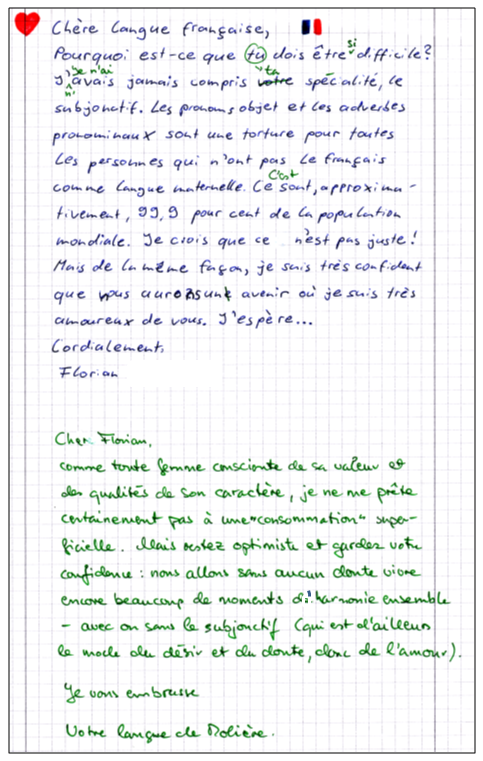 Chère langue française,
Pourquoi est-ce que tu dois être si difficile?
je n'ai
J'avais jamais compris votre ta spécialité, le
subjonctif. Les pronoms objet et les adverbes
pronominaux sont une torture pour toutes
les personnes qui n'ont pas le français
C'est
comme langue maternelle. Ce sont, approxima-
tivement, 99,9 pour cent de la population
mondiale. Je crois que ce n'est pas juste!
Mais de la même façon, je suis très confident
que nous aurons un avenir où je suis très
amoureux de vous. J'espère...
Cordialement,
Florian
Cher Florian,
comme toute femme consciente de sa valeur et
des qualités de son caractère, je ne me prête
certainement pas à une "consommation" super-
ficielle. Mais restez optimiste et gardez votre
confidence: nous allons sans aucun doute vivre
encore beaucoup de moments d'harmonie ensemble
- avec ou sans le subjonctif (qui est d'ailleurs
le mode du désir et du doute, donc de l'amour).
Je vous embrasse
Votre langue de Molière.